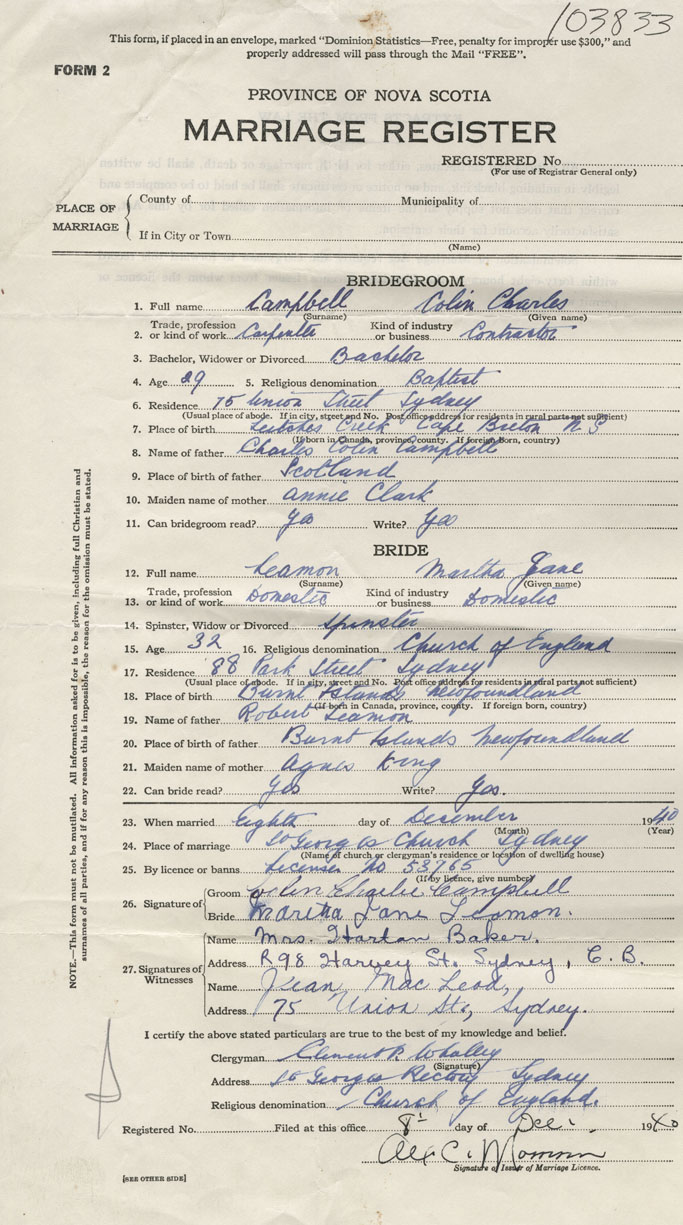 103833
This form, if placed in an envelope, marked "Dominion Statistics—Free, penalty for improper use $300," and
properly addressed will pass through the Mail "FREE".
FORM 2
PROVINCE OF NOVA SCOTIA
MARRIAGE REGISTER
REGISTERED No.
(For use of Registrar General only)
PLACE OF MARRIAGE
County of Municipality of
If in City or Town
(Name)
BRIDEGROOM
1. Full name Campbell Colin Charles
(Surname) (Given name)
2. Trade, profession or kind of work Carpenter Kind of industry or business Contractor
3. Bachelor, Widower or Divorced Bachelor
4. Age 29 5. Religious denomination Baptist
6. Residence 75 Union Street Sydney
(Usual place of abode. If in city, street and No. Post office address for residents in rural parts not sufficient)
7. Place of birth Leitches Creek Cape Breton N S
(If born in Canada, province, county. If foreign born, country)
8. Name of father Charles Colin Campbell
9. Place of birth of father Scotland
10. Maiden name of mother Annie Clark
11. Can bridegroom read? Yes Write? Yes
BRIDE
12. Full name Leamon Martha Jane
(Surname) (Given name)
13. Trade, profession or kind of work Domestic Kind of industry or business Domestic
14. Spinster, Widow or Divorced Spinster
15. Age 32 16. Religious denomination Church of England
17. Residence 88 Park Street Sydney
(Usual place of abode. If in city, street and No. Post office address for residents in rural parts not sufficient)
18. Place of birth Burnt Islands Newfoundland
(If born in Canada, province, county. If foreign born, country)
19. Name of father Robert Leamon
20. Place of birth of father Burnt Islands Newfoundland
21. Maiden name of mother Agnes King
22. Can bride read? Yes Write? Yes.
23. When married Eighth day of December 1940
(Month) (Year)
24. Place of marriage St Georges Church Sydney
(Name of church or clergyman's residence or location of dwelling house)
25. By licence or banns License No 53765
(If by licence, give number)
26. Signature of Groom Colin Charlie Campbell
Bride Martha Jane Leamon.
27. Signatures of Witnesses
Name Mrs. Harlan Baker.
Address R98 Harvey St. Sydney, C. B.
Name Jean Mac Leod,
Address 75 Union St., Sydney.
I certify the above stated particulars are true to the best of my knowledge and belief.
Clergyman Clement R. Whalley
(Signature)
Address St Georges Rectory Sydney
Religious denomination Church of England.
Registered No. Filed at this office 8th day of Dec. 1940
Alex C.
Signature of Issuer of Marriage Licence.
[SEE OTHER SIDE]
NOTE.—This form must not be mutilated. All information asked for is to be given, including full Christian and
surnames of all parties, and if for any reason this is impossible, the reason for the omission must be stated.